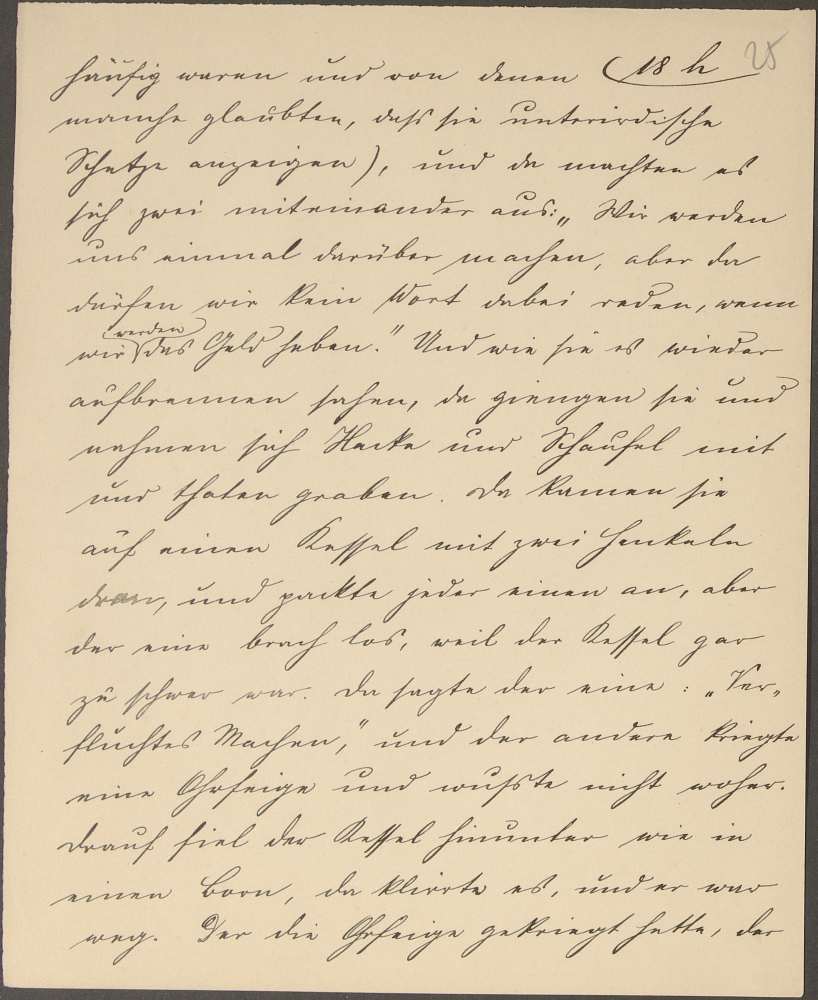 häufig waren und von denen (18 h 25
manche glaubten, dass sie unterirdische
Schätze anzeigen), und da machten es
sich zwei miteinander aus: „Wir werden
uns einmal darüber machen, aber da
dürfen wir kein Wort dabei reden, wenn
werden
wir das Geld haben." Und wie sie es wieder
aufbrennen sahen, da giengen sie und
nahmen sich Hacke und Schaufel mit
und thaten graben. Da kamen sie
auf einen Kessel mit zwei Henkeln
dran, und packte jeder einen an, aber
der eine brach los, weil der Kessel gar
zu schwer war. Da sagte der eine: „Ver-
fluchtes Machen," und der andere kriegte
eine Ohrfeige und wufste nicht woher.
Drauf fiel der Kessel hinunter wie in
einen Born, da klirrte es, und er war
weg. Der die Ohrfeige gekriegt hatte, der